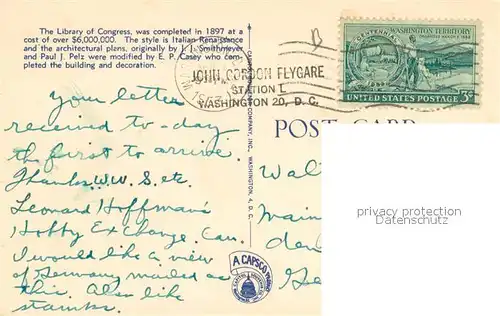 The Library of Congress, was completed in 1897 at a
cost of over $6,000,000. The style is Italian Renaissance
and the architectural plans, originally by J. L. Smithmeyer
and Paul J. Pelz were modified by E. P. Casey who com-
pleted the building and decoration.
JOHN GORDON FLYGARE
STATION L
WASHINGTON 20, D. C.
CENTENNIAL
WASHINGTON TERRITORY
UNITED STATES POSTAGE 3¢
POST CARD
Your letter
received to-day
the first to arrive.
Thanks W.W.S. etc.
Leonard Hoffman's
Hobby Exchange. Can.
I would like a view
of Germany mailed as
this. Also like
stamps.
COMPANY, INC., WASHINGTON 4, D. C.
A CAPSCO
Walt
Main
den
Ge
privacy protection
Datenschutz